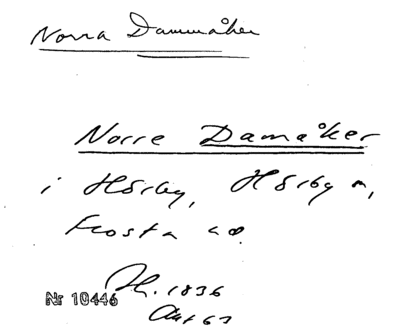 Norra Dammåker
Norre Damåker
i Hörby, Hörby sn,
Frosta hd.
H. 1836
Akt 63
Nr 10446